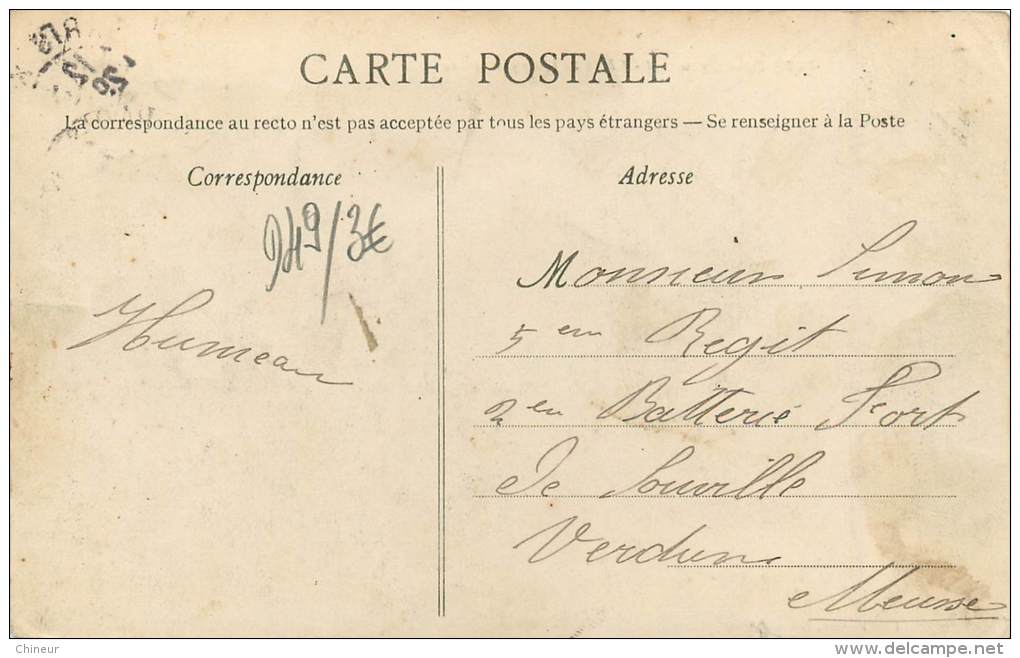 CARTE POSTALE
La correspondance au recto n'est pas acceptée par tous les pays étrangers — Se renseigner à la Poste
Correspondance
Adresse
949/3€
Humeau
Monsieur Simon
5 em Regit
2 em Batterie Fort
de Souville
Verdun
Meuse
Chineur
delcampe.net